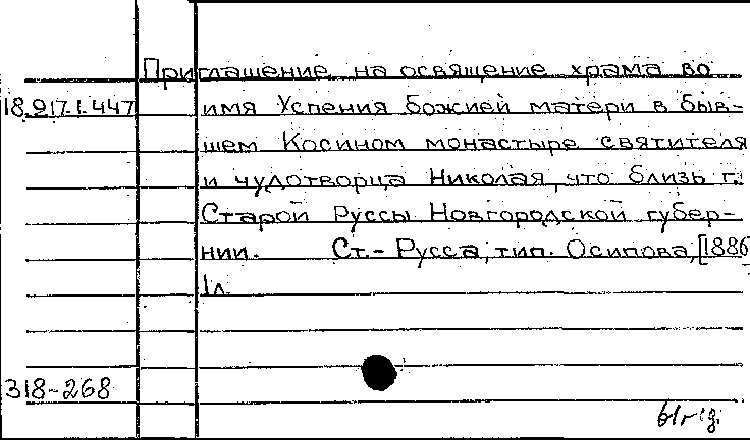 Приглашение на освящение храма во
18.217.1.447 имя Успения божией матери в быв-
шем Косином монастыре святителя
и чудотворца Николая, что близь г.
Старой Руссы Новгородской губер-
нии. Ст.-Русса, тип. Осипова, [1886
1л.
318-268